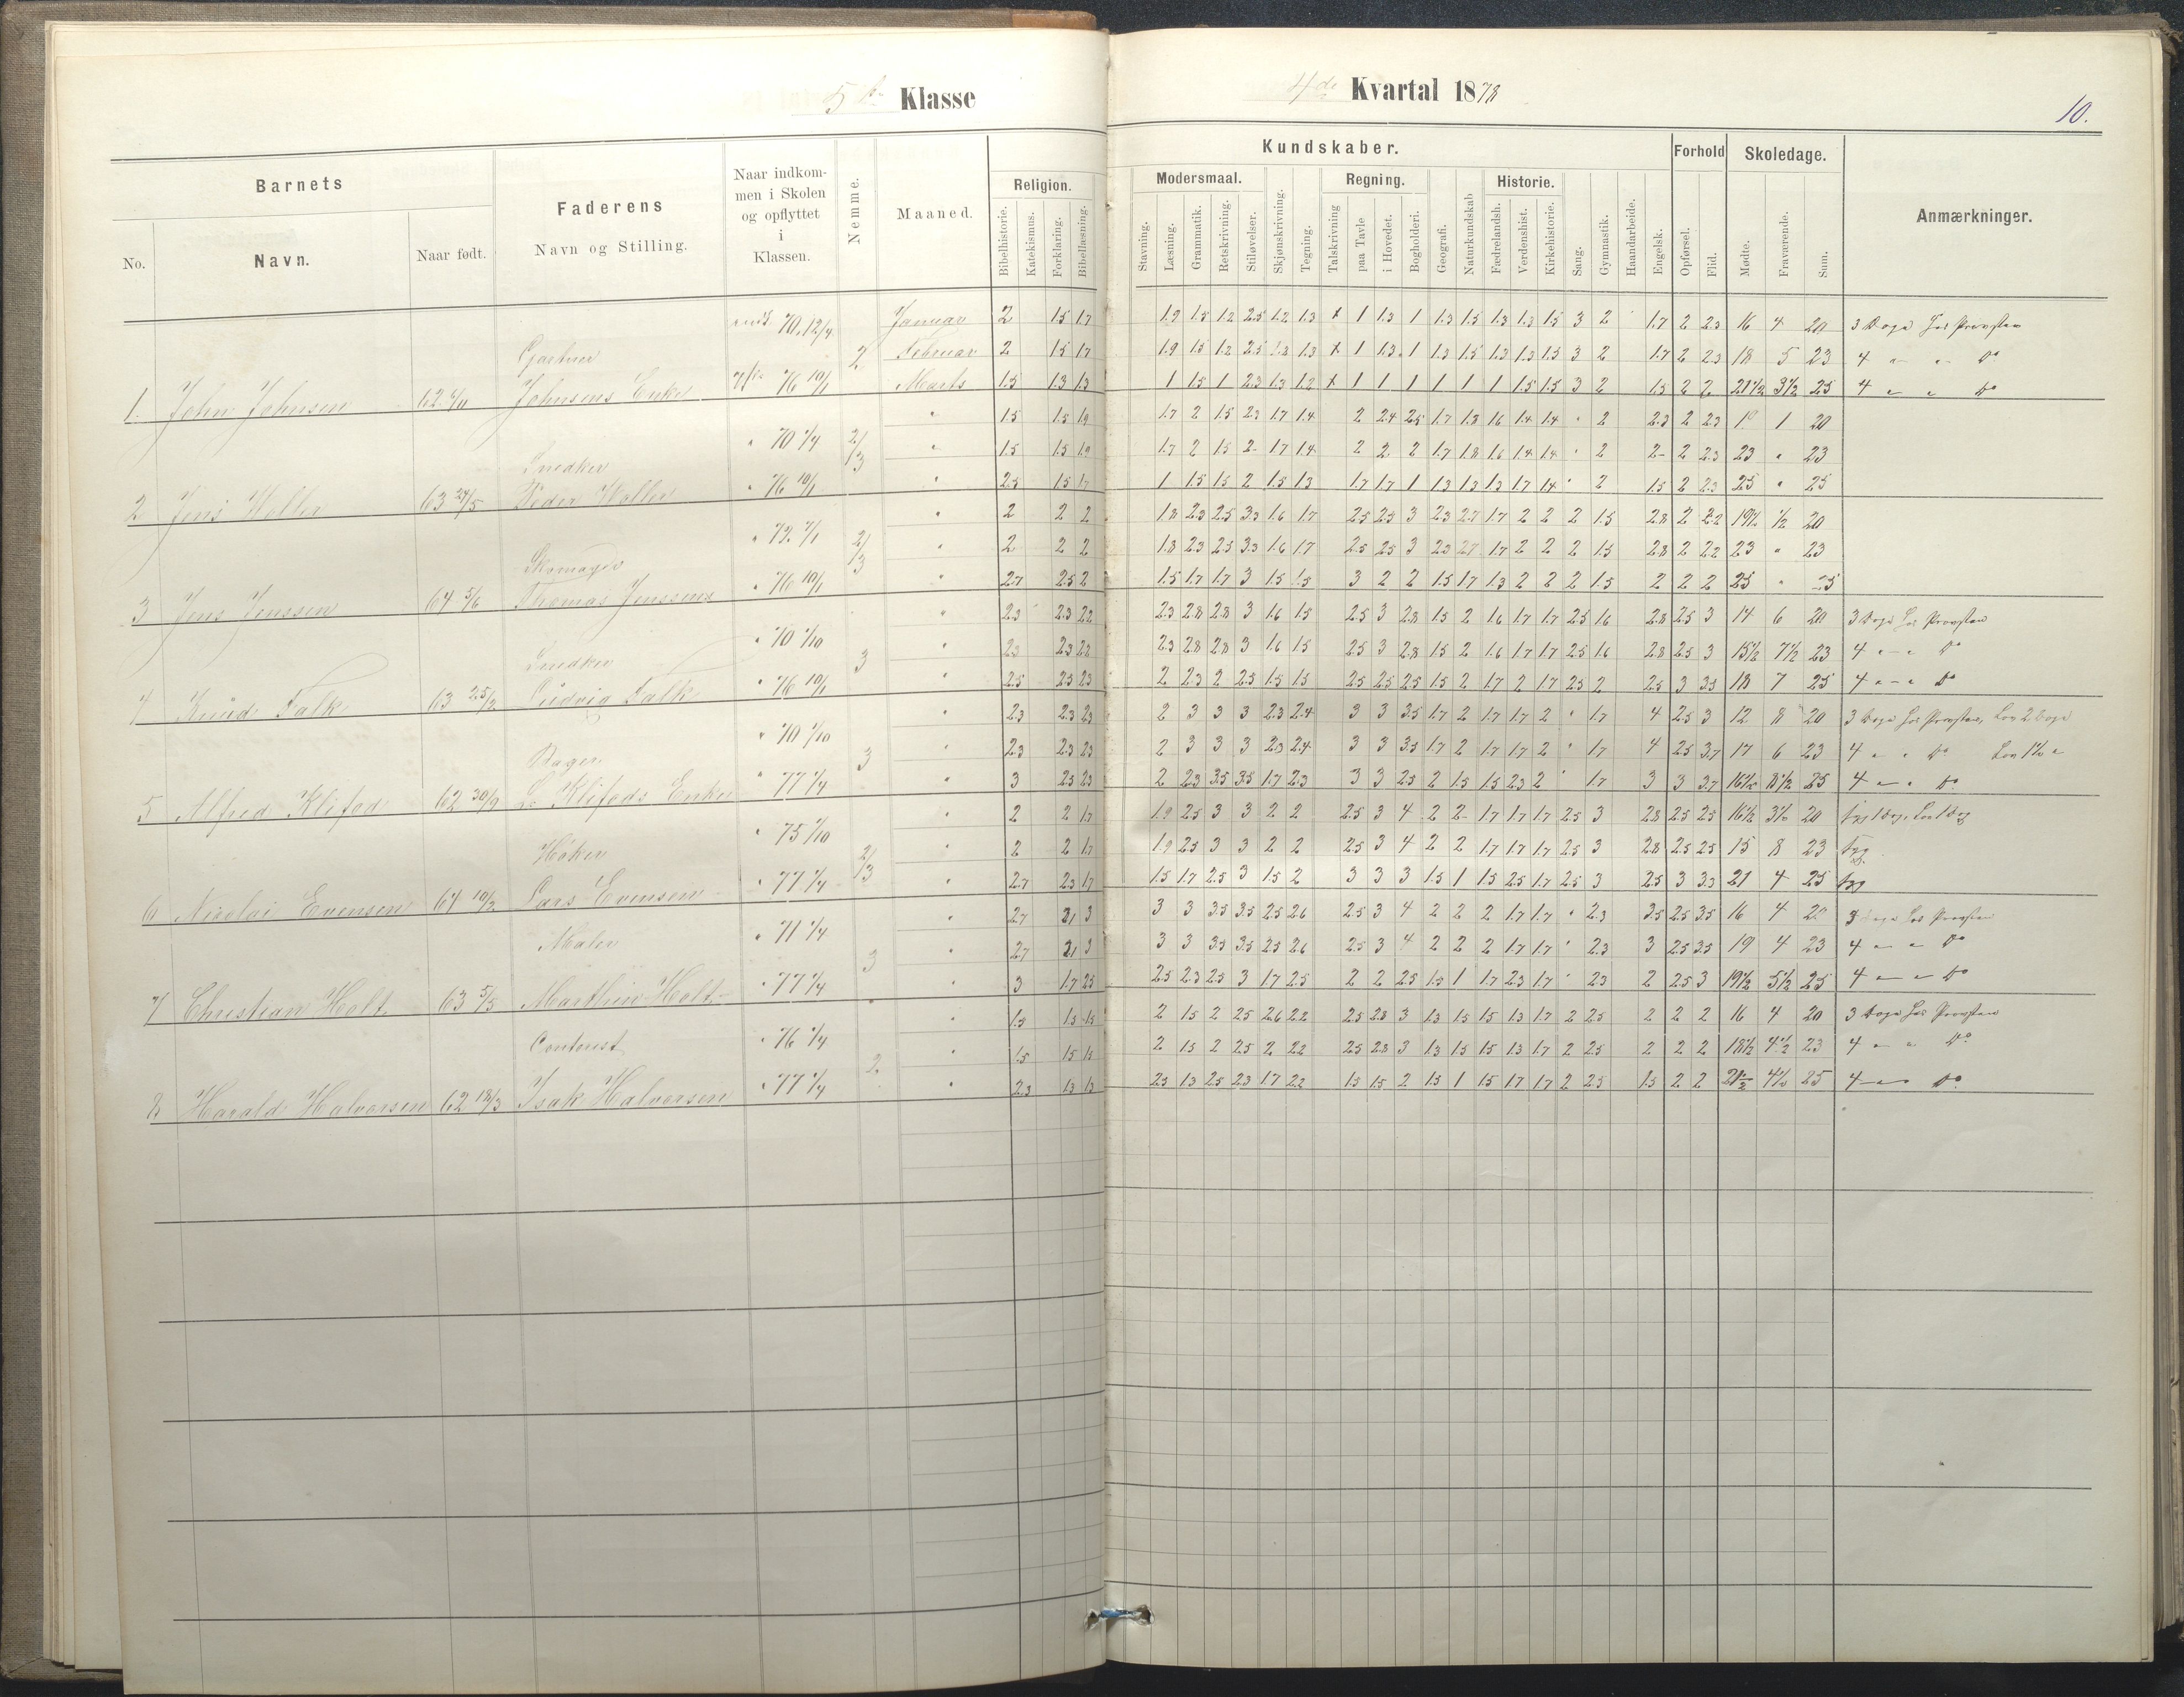 5te Klasse
4de Kvartal 1878
10.
Barnets
No.
Navn.
Naar født.
Faderens
Navn og Stilling.
Naar indkom-
men i Skolen
og opflyttet
i
Klassen.
Nemme.
Maaned.
Religion.
Bibelhistorie.
Katekismus.
Forklaring.
Bibellæsning.
Kundskaber.
Stavning.
Modersmaal.
Læsning.
Grammatik.
Retskrivning.
Stiløvelser.
Skjønskrivning.
Tegning.
Regning.
Talskrivning
paa Tavle
i Hovedet.
Bogholderi.
Geografi.
Naturkundskab
Historie.
Fædrelandsh.
Verdenshist.
Kirkehistorie.
Sang.
Gymnastik.
Haandarbeide.
Engelsk.
Forhold
Opførsel.
Flid.
Skoledage.
Mødte.
Fraværende.
Sum.
Anmærkninger.
70.12/4 Januar 2 1.5 1.7 1.9 1.5 1.2 2.5 1.2 1.3 x 1 1.3 1 1.3 1.5 1.3 1.3 1.5 3 2 1.7 2 2.3 16 4 20 3 Dage hos Provsten
Gartner 2 Februar 2 1.5 1.7 1.9 1.5 1.2 2.5 1.2 1.3 x 1 1.3 1 1.3 1.5 1.3 1.3 1.5 3 2 1.7 2 2.3 18 5 23 4 " " Do
1. John Johnsen Johnsens Enke 76 10/1 Marts 1.5 1.3 1.3 1 1.5 1 2.3 1.3 1.2 x 1 1 1 1 1 1 1.5 1.5 3 2 1.5 2 2 21 1/2 3 1/2 25 4 " " Do
" 1.5 1.5 1.9 1.7 2 1.5 2.3 1.7 1.4 2 2.4 2.5 1.7 1.8 1.6 1.4 1.4 " 2 2.3 2 2.3 19 1 20
Snedker " 70 2/3 " 1.5 1.5 1.9 1.7 2 1.5 2 1.7 1.4 2 2 2 1.7 1.8 1.6 1.4 1.4 " 2 2 2 2.3 23 " 23
2 Jens Holler 63 27/5 Peder Holler " 76 10/1 " 2.5 1.5 1.7 1 1.5 1.5 2 1.5 1.3 1.7 1.7 1 1.3 1.3 1.3 1.7 1.4 " 2 1.5 2 2.3 25 " 25
" 2 2 2 1.8 2.3 2.5 3.3 1.6 1.7 2.5 2.5 3 2.3 2.7 1.7 2 2 2 1.5 2.8 2 2.2 19 1/2 1/2 20
Skomager " 72 2/3 " 2 2 2 1.8 2.3 2.5 3.3 1.6 1.7 2.5 2.5 3 2.3 2.7 1.7 2 2 2 1.5 2.8 2 2.2 23 " 23
3 Jens Jenssen 64 5/6 Thomas Jenssens " 76 10/1 " 2.7 2.5 2 1.5 1.7 1.7 3 1.5 1.5 3 2 2 1.5 1.7 1.3 2 2 2 1.5 2 2 2 25 " 25
" 2.3 2.3 2.2 2.3 2.8 2.8 3 1.6 1.5 2.5 3 2.8 1.5 2 1.6 1.7 1.7 2.5 1.6 2.8 2.5 3 14 6 20 3 Dage hos Provsten
Snedker " 70 1/10 3 " 2.3 2.3 2.2 2.3 2.8 2.8 3 1.6 1.5 2.5 3 2.8 1.5 2 1.6 1.7 1.7 2.5 1.6 2.8 2.5 3 15 1/2 7 1/2 23 4 " " Do
4 Knud Falk 63 25/2 Ludvig Falk " 76 10/1 " 2.5 2.5 2.3 2 2.3 2 2.5 1.5 1.5 2.5 2.5 2.5 1.5 2 1.7 2 1.7 2.5 2 2.5 3 3.5 18 7 25 4 " " Do
" 2.3 2.3 2.3 2 3 3 3 2.3 2.4 3 3 3.5 1.7 2 1.7 1.7 2 " 1.7 4 2.5 3 12 8 20 3 Dage hos Provsten, Lov 2 Dage
Bager " 70 1/10 3 " 2.3 2.3 2.3 2 3 3 3 2.3 2.4 3 3 3.5 1.7 2 1.7 1.7 2 " 1.7 4 2.5 3.7 17 6 23 4 " " Do
5 Alfred Klifod 62 30/9 Klifods Enke " 77 1/4 " 3 2.5 2.3 2 2.3 3.5 3.5 1.7 2.3 3 3 2.5 2 1.5 1.5 2.3 2 " 1.7 3 3 3.7 16 1/2 8 1/2 25 4 " " Do
" 2 2 1.7 1.9 2.5 3 3 2 2 2.5 3 4 2 2 1.7 1.7 1.7 2.5 3 2.8 2.5 2.5 16 1/2 3 1/2 20
Høker " 75 1/10 2/3 " 2 2 1.7 1.9 2.5 3 3 2 2 2.5 3 4 2 2 1.7 1.7 1.7 2.5 3 2.8 2.5 2.5 15 8 23 Syg
6 Nicolai Evensen 64 10/2 Lars Evensen " 77 1/4 " 2.7 2.3 1.7 1.5 1.7 2.5 3 1.5 2 3 3 3 1.5 1 1.5 2.5 1.7 2.5 3 2.5 3 3.3 21 4 25 Syg
" 2.7 3 3 3 3.5 3.5 2.5 2.6 2.5 3 4 2 2 2 1.7 1.7 " 2.3 3.5 2.5 3.5 16 4 20 3 Dage hos Provsten
Maler " 71 1/4 3 " 2.7 3 3 3 3.5 3.5 2.5 2.6 2.5 3 4 2 2 2 1.7 1.7 " 2.3 3 2.5 3.5 19 4 23 4 " " Do
7 Christian Holt 63 5/5 Marthin Holt " 77 1/4 " 3 1.7 2.5 2.5 2.3 2.5 3 1.7 2.5 2 2 2.5 1.5 1 1.7 2.3 1.7 " 2.3 2 2.5 3 19 1/2 5 1/2 25 4 " " Do
" 1.5 1.5 1.5 2 1.5 2 2.5 2.6 2.2 2.5 2.8 3 1.3 1.5 1.5 1.3 1.7 2 2.5 2 2 2 16 4 20 3 Dage hos Provsten
Contorist " 76 1/4 2 " 1.5 1.5 1.5 2 1.5 2 2.5 2 2.2 2.5 2.8 3 1.3 1.5 1.5 1.3 1.7 2 2.5 2 2 2 18 1/2 4 1/2 23 4 " " Do
8 Harald Halvorsen 62 18/3 Isak Halvorsen " 77 1/4 " 2.3 1.3 1.3 2.5 1.3 2.5 2.3 1.7 2.2 1.5 1.5 2 1.5 1 1.5 1.7 1.7 2 2.5 1.5 2 2 21 1/2 4 1/2 25 4 " " Do